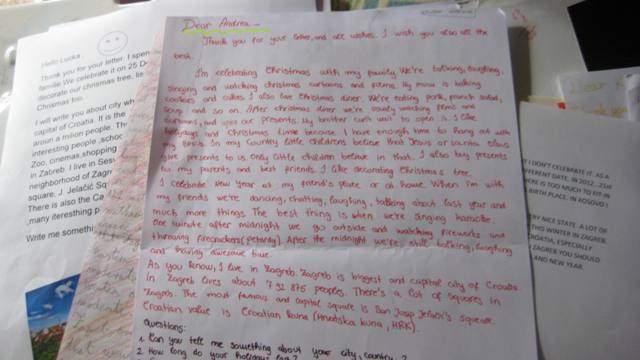 Dear Andrea...
Thank you for your letter and all wishes. I wish you also all the
best.
I'm celebrating Christmas with my family. We're talking, laughing,
singing and watching christmas cartoons and films. My mum is baking
cookies and cakes. I also love Christmas diner. We're eating pork, salad,
soup and so on. After christmas diner we're usually watching films and
cartoons, and open our presents. My brother can't wait to open it. I like
holidays and Christmas time because I have enough time to hang out with
my In my Country little children believe that Jesus or Santa Claus
give presents to us. Only little children believe in that. I also buy presents
for my parents and best friends. I like decorating Christmas tree.
I celebrate New Year at my friend's place or at home. When I'm with
my friends we're dancing, chatting, laughing, talking about last year and
much more things. The best thing is when we're singing karaoke.
One minute after midnight we go outside and watching fireworks and
throwing firecrackers (petardy). After the midnight we're still talking, laughing
and having awesome time.
As you know, I live in Zagreb. Zagreb is biggest and capital city of Croatia.
In Zagreb lives about 792 875 peoples. There's a lot of squares in
Zagreb. The most famous and capital square is Ban Josip Jelačić's square.
Croatian value is Croatian kuna (Hrvatska kuna, HRK).
questions:
1. Can you tell me something about your city, country?
2. How long do your holidays
Hello Lucka
Thank you for your letter. I spen
familie We celebrate it on 25 De
decorate our chrismas tree, lis
Chrismas too.
I will write you about city wh
capital of Croatia. It is the
aroun a milion people. Th
interesting people ,schoo
Zoo, cinemas,shopping
in Zabreb. I live in Sesv
neighborhood of Zagr
square. J. Jelačić Squ
There is also the Ca
,many iteresting p
Write me somethi
I DON'T CELEBRATE IT. AS A
FFERENT DATE. IN 2012...21st
ERE IS TOO MUCH TO FIT IN
BIRTH PLACE: IN KOSOVO.)
ERY NICE STATE. A LOT OF
THIS WINTER IN ZAGREB.
ROATIA, ESPECIALLY
ZAGREB YOU SHOULD
AND NEW YEAR.